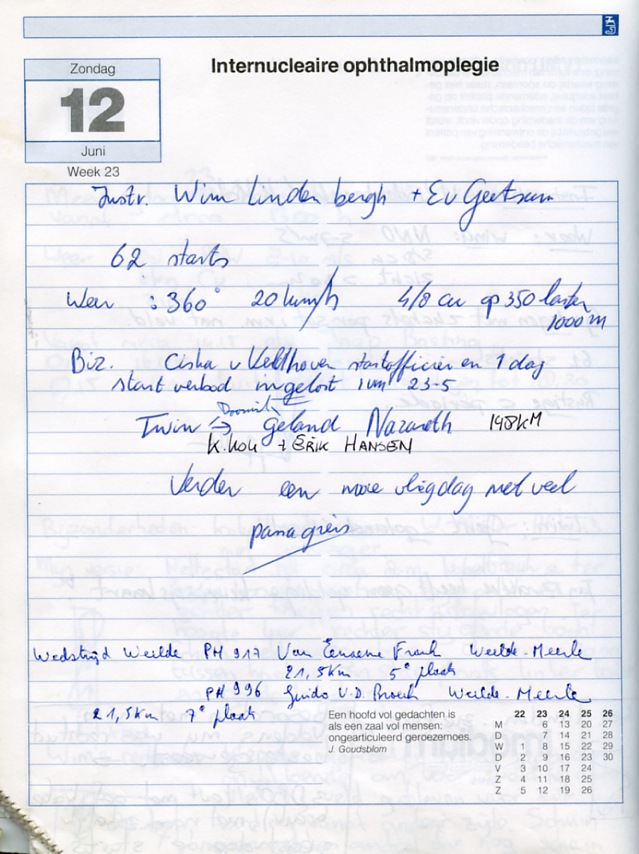 Internucleaire ophthalmoplegie
Zondag
12
Juni
Week 23
Instr. Wim Lindenbergh + Ev Geetsum
62 starts
Weer : 360° 20 km/h 4/8 cu op 350 later
1000 m
Biz. Ciska v Velthoven startofficier en 1 dag
start verbod ingelost ivm 23-5
Twin → geland Nazareth 148KM
K. KOU + ERIK HANSEN
Verder een mooie vliegdag met veel
passagiers
Wedstrijd Weelde PH 917 Van Frank Weelde-Meerle
21,5km 5° plaats
PH 996 Guido V.D. Broek Weelde-Meerle
21,5km 7° plaats
Een hoofd vol gedachten is
als een zaal vol mensen:
ongearticuleerd geroezemoes.
J. Goudsblom
22 23 24 25 26
M 6 13 20 27
D 7 14 21 28
W 1 8 15 22 29
D 2 9 16 23 30
V 3 10 17 24
Z 4 11 18 25
Z 5 12 19 26